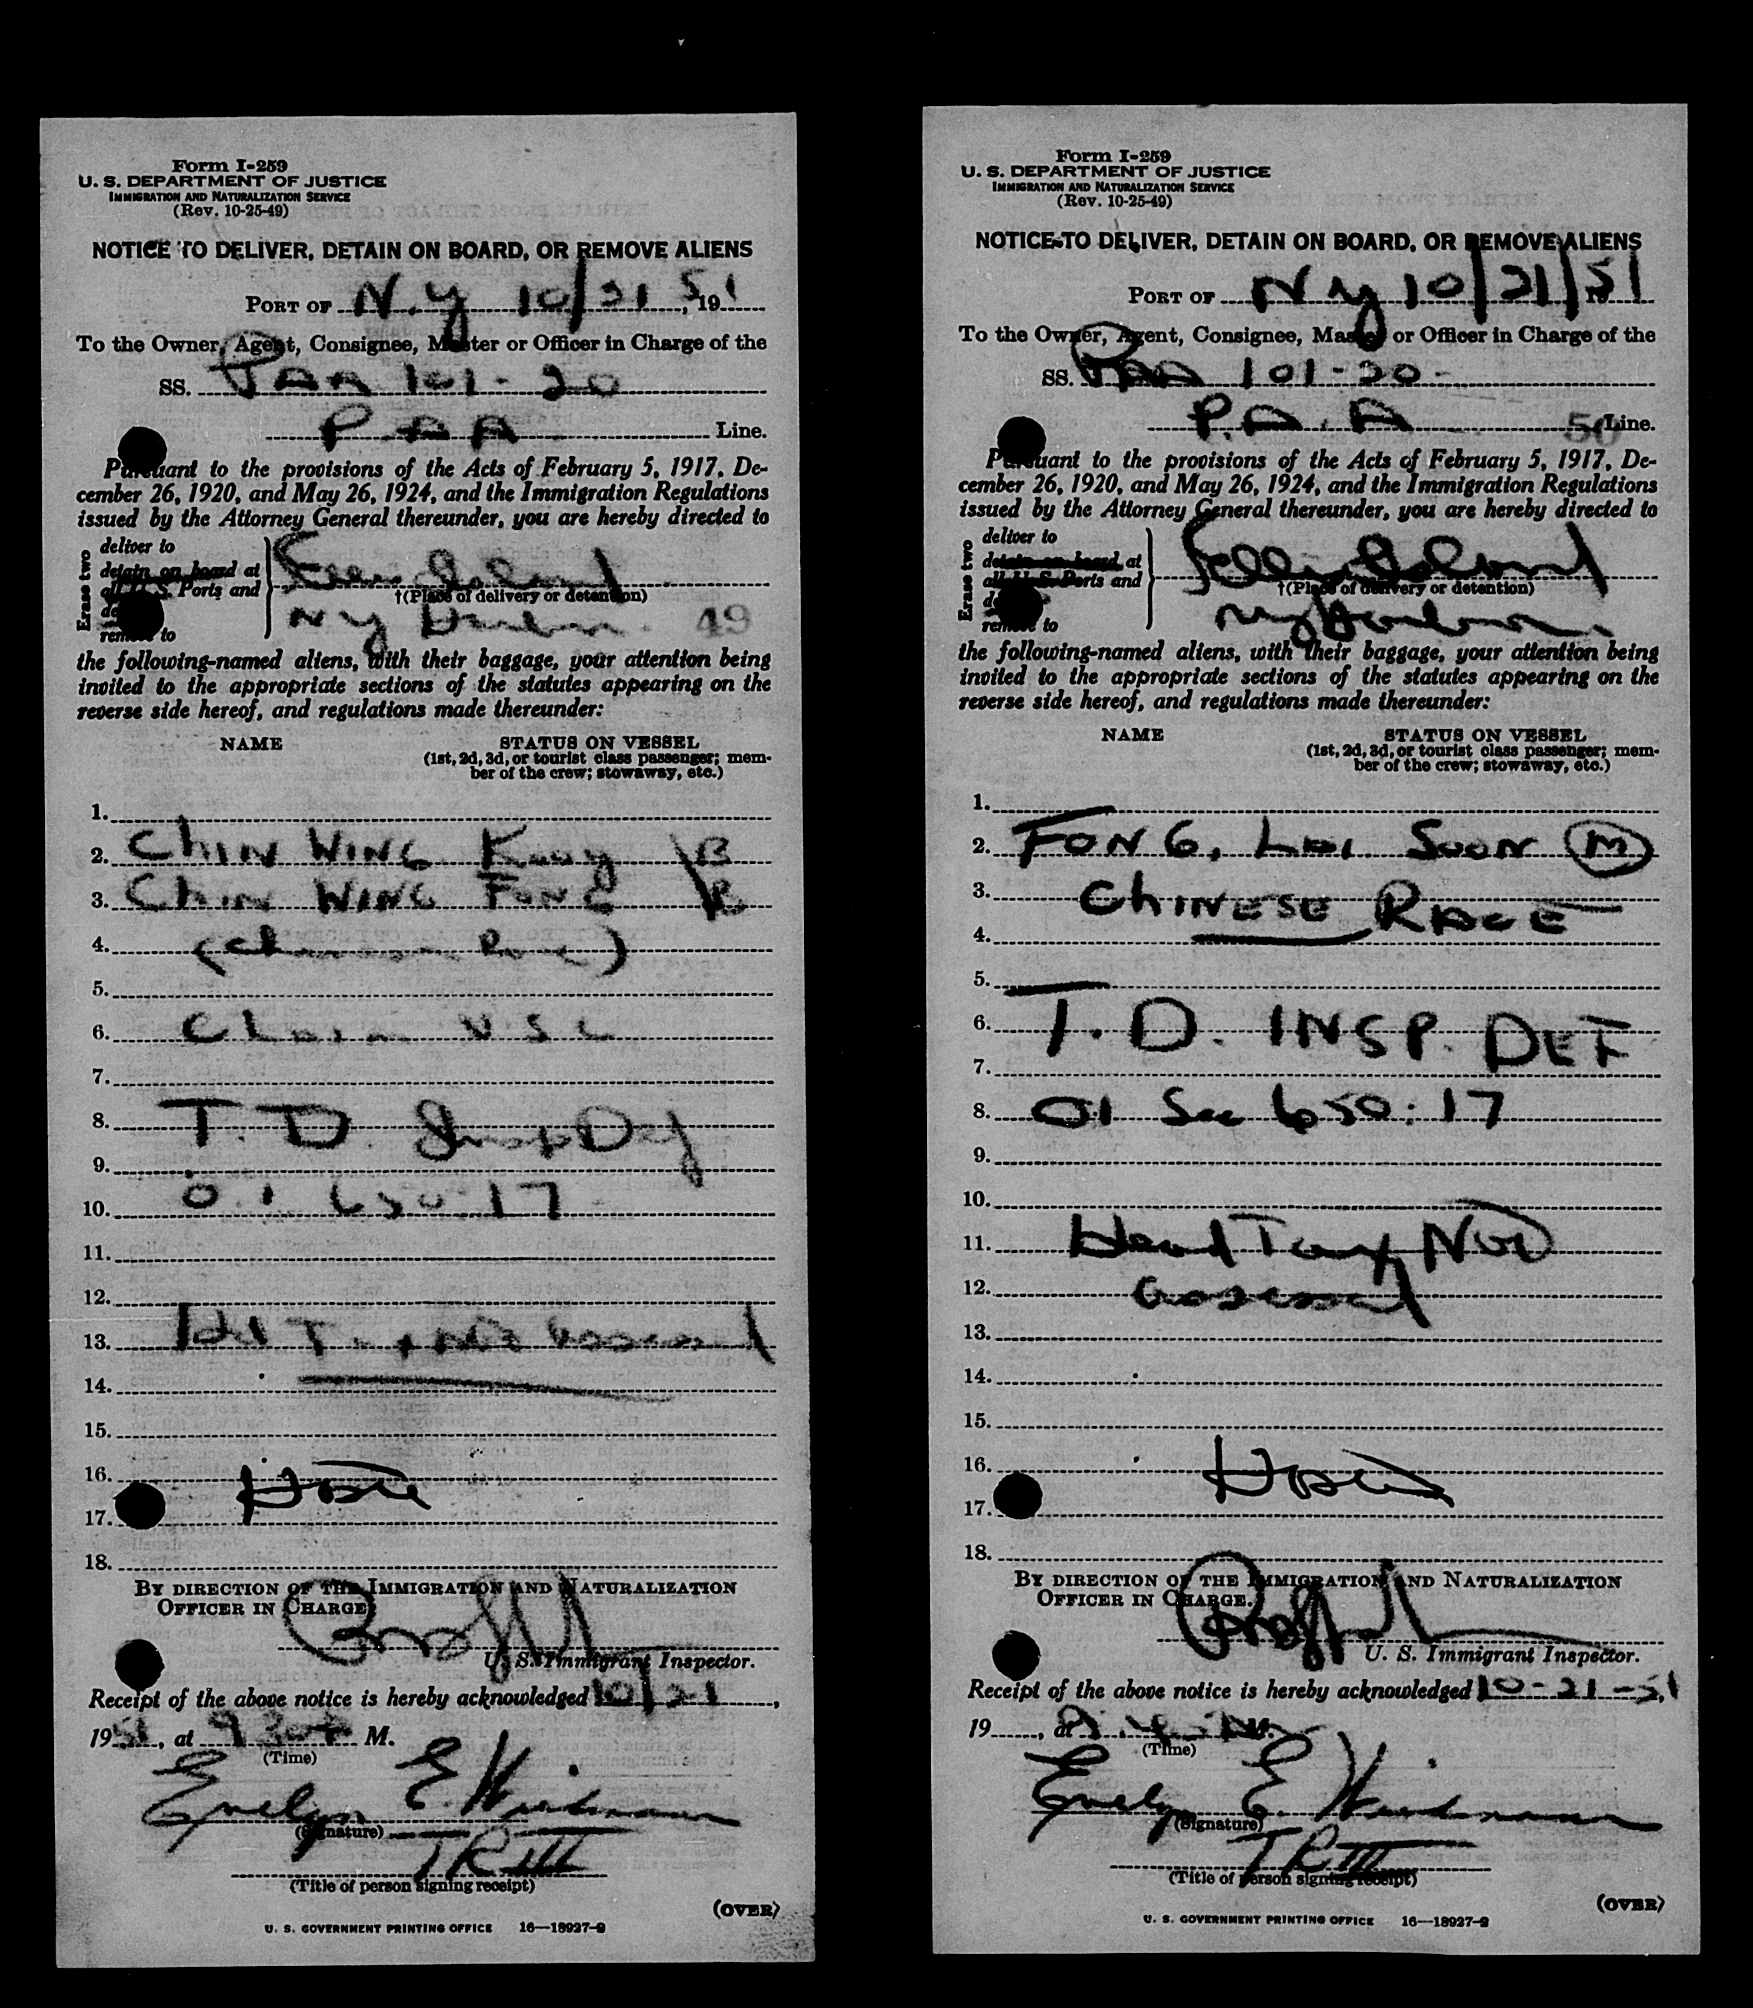 Form I-259
U. S. DEPARTMENT OF JUSTICE
IMMIGRATION AND NATURALIZATION SERVICE
(Rev. 10-25-49)
NOTICE TO DELIVER, DETAIN ON BOARD, OR REMOVE ALIENS
PORT OF N.Y 10/21, 1951
To the Owner, Agent, Consignee, Master or Officer in Charge of the
SS. PAA 101-20
PAA Line.
Pursuant to the provisions of the Acts of February 5, 1917, De-
cember 26, 1920, and May 26, 1924, and the Immigration Regulations
issued by the Attorney General thereunder, you are hereby directed to
Erase two
deliver to
detain on board at
all U. S. Ports and
remove to
Ellis Island
†(Place of delivery or detention)
NY Harbor. 49
the following-named aliens, with their baggage, your attention being
invited to the appropriate sections of the statutes appearing on the
reverse side hereof, and regulations made thereunder:
NAME STATUS ON VESSEL
(1st, 2d, 3d, or tourist class passenger; mem-
ber of the crew; stowaway, etc.)
1.
2. CHIN WING
3. CHIN WING FONG
4. (Chinese Race)
5.
6. Claim USC
7.
8. T. D. Insp Def
9.
10. 01 650.17
11.
12.
13. Hd Tax Not Assessed
14.
15.
16.
17.
18.
BY DIRECTION OF THE IMMIGRATION AND NATURALIZATION
OFFICER IN CHARGE
U. S. Immigrant Inspector.
Receipt of the above notice is hereby acknowledged 10/21,
1951, at 9 30 M.
(Time)
Evelyn E.
(Signature)
TR III
(Title of person signing receipt)
(OVER)
U. S. GOVERNMENT PRINTING OFFICE 16—18927-2
Form I-259
U. S. DEPARTMENT OF JUSTICE
IMMIGRATION AND NATURALIZATION SERVICE
(Rev. 10-25-49)
NOTICE TO DELIVER, DETAIN ON BOARD, OR REMOVE ALIENS
PORT OF NY 10/21/51
To the Owner, Agent, Consignee, Master or Officer in Charge of the
SS. PAA 101-20-
P.A.A 50 Line.
Pursuant to the provisions of the Acts of February 5, 1917, De-
cember 26, 1920, and May 26, 1924, and the Immigration Regulations
issued by the Attorney General thereunder, you are hereby directed to
Erase two
deliver to
detain on board at
all U. S. Ports and
remove to
Ellis Island
†(Place of delivery or detention)
NY Harbor.
the following-named aliens, with their baggage, your attention being
invited to the appropriate sections of the statutes appearing on the
reverse side hereof, and regulations made thereunder:
NAME STATUS ON VESSEL
(1st, 2d, 3d, or tourist class passenger; mem-
ber of the crew; stowaway, etc.)
1.
2. FONG, LAI SOON M
3. CHINESE RACE
4.
5.
6. T. D. INSP. DEF
7.
8. 01 Sec 650:17
9.
10.
11. Head Tax Not
12. Assessed
13.
14.
15.
16.
17.
18.
BY DIRECTION OF THE IMMIGRATION AND NATURALIZATION
OFFICER IN CHARGE.
U. S. Immigrant Inspector.
Receipt of the above notice is hereby acknowledged 10-21-51,
19, at M.
(Time)
Evelyn E.
(Signature)
TR III
(Title of person signing receipt)
(OVER)
U. S. GOVERNMENT PRINTING OFFICE 16—18927-2